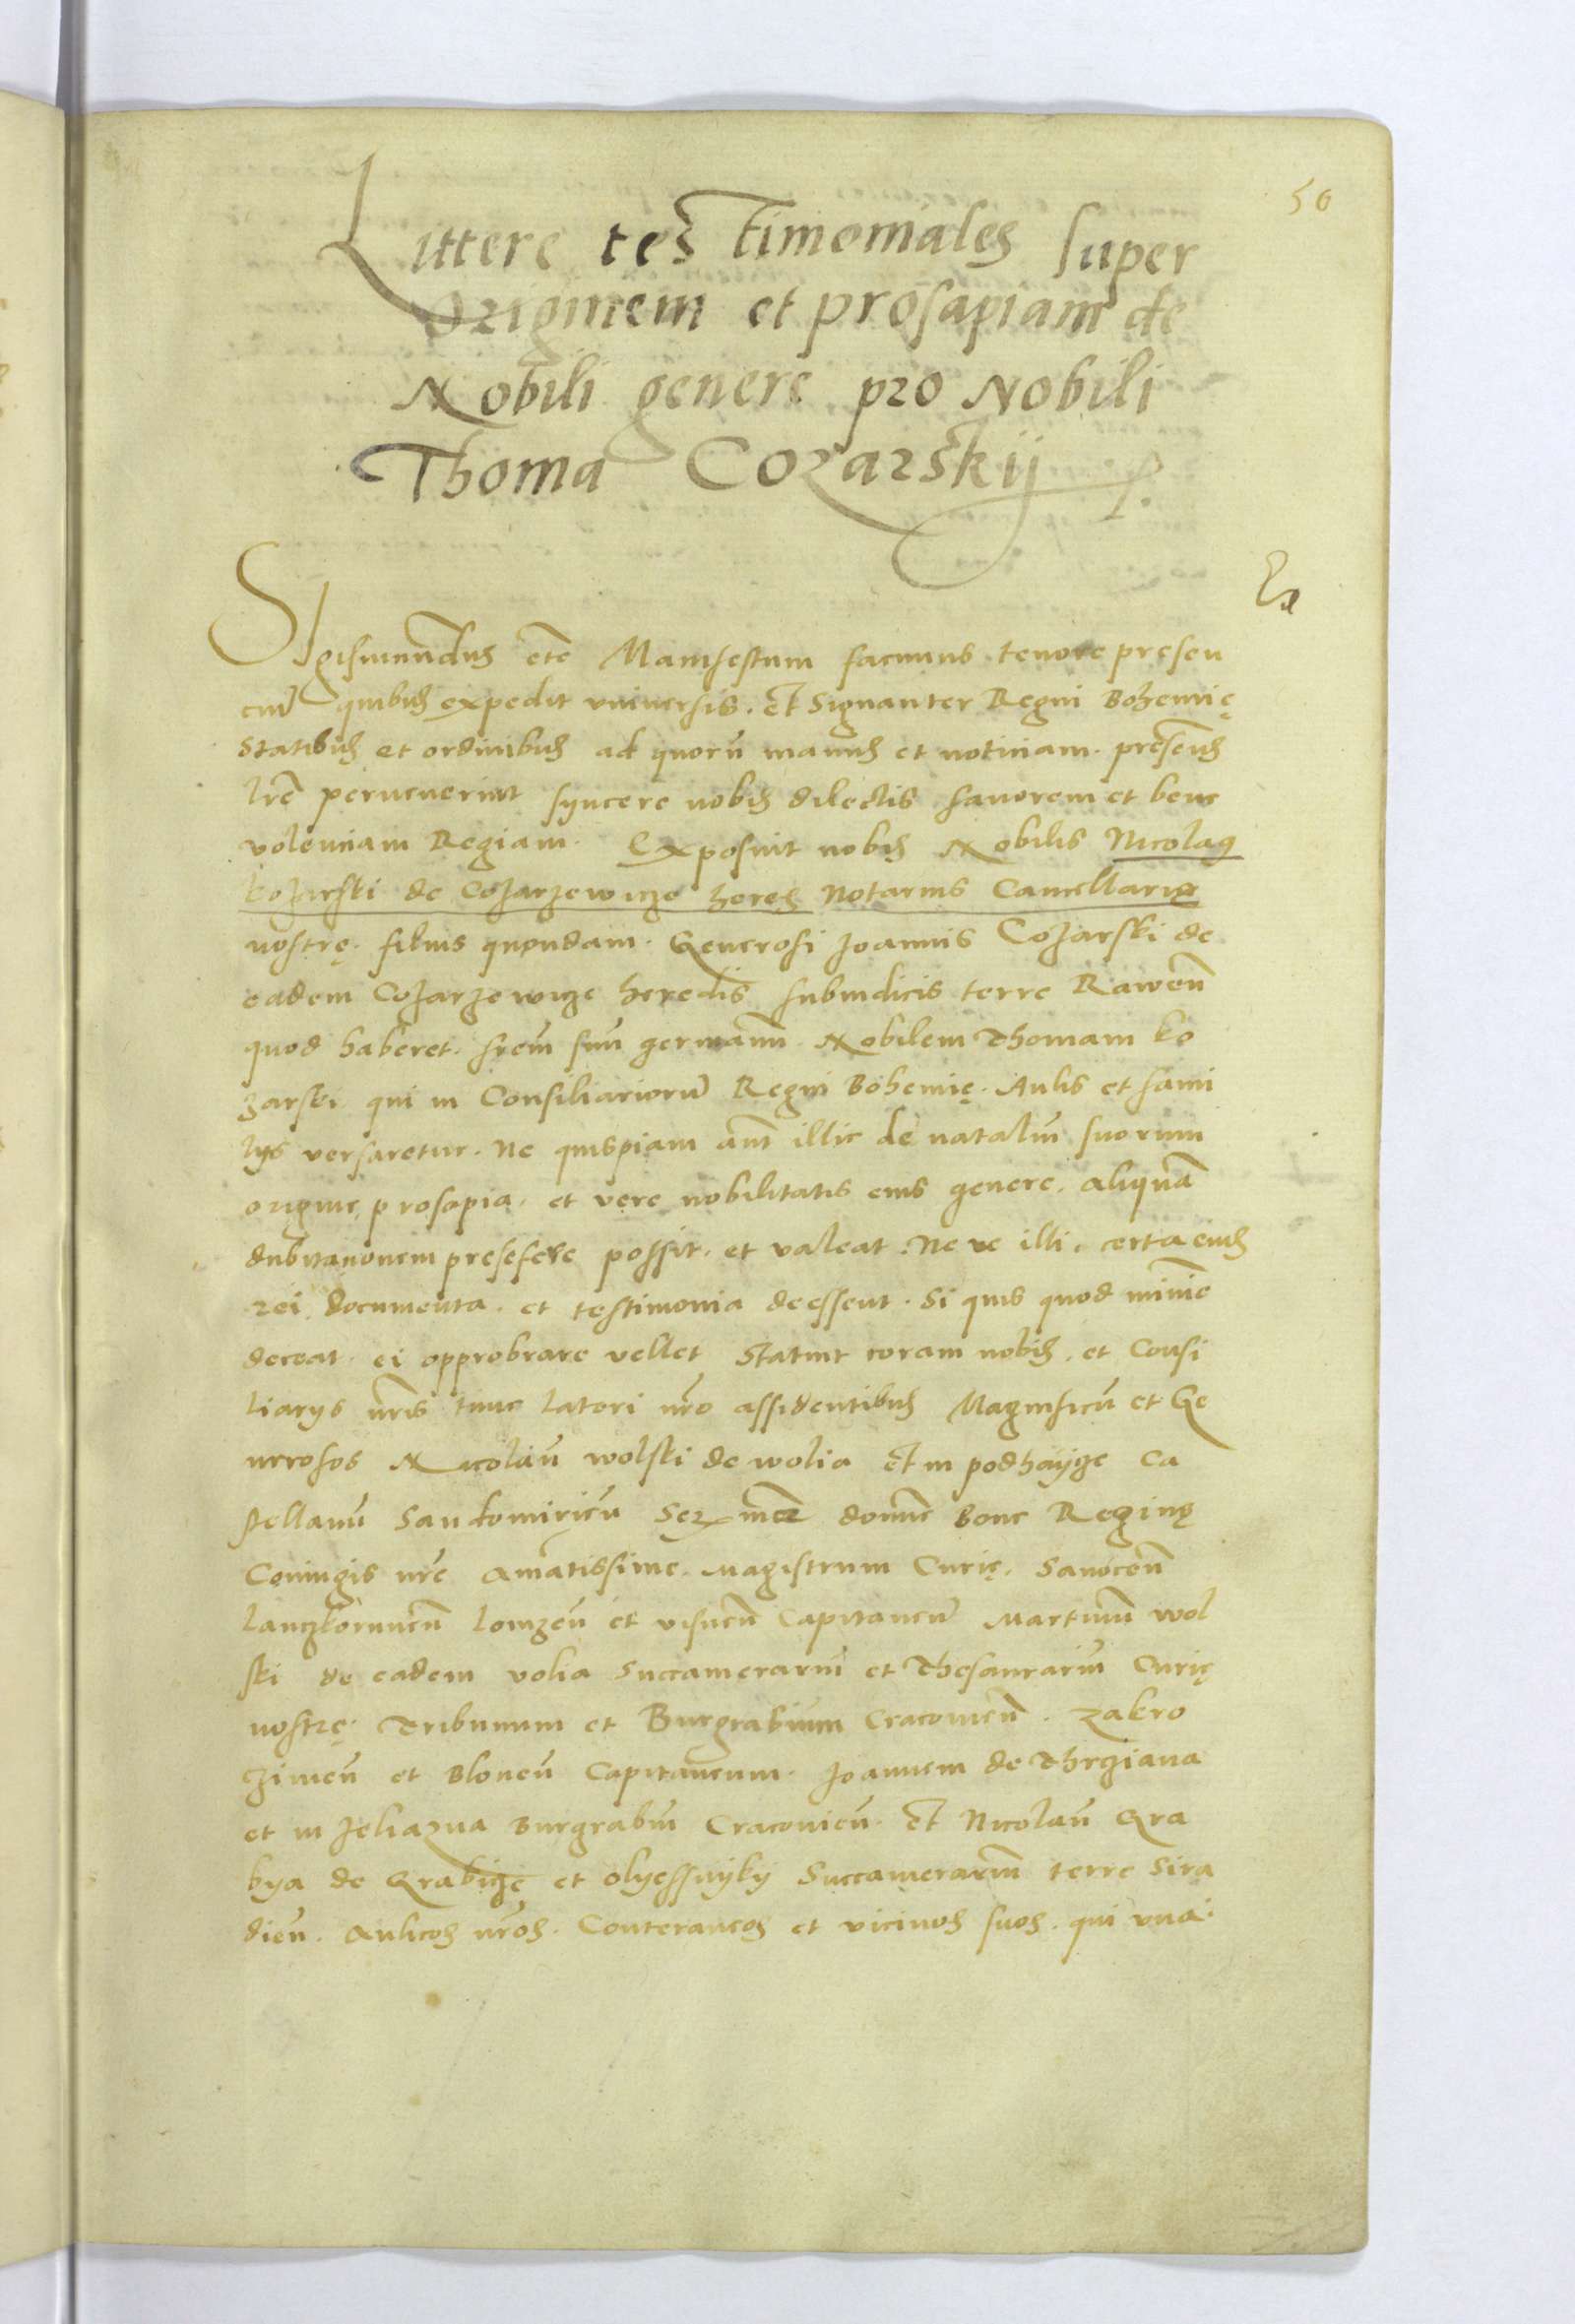 50
Littere testimoniales super
Originem et prosapiam de
Nobili genere pro Nobili
Thoma Cozarskij
Sigismundus etc̄ Manifestum facimus tenore presen
ciū quibus expedit vniuersis. et Signanter Regni Bohemię
Statibus et ordinibus ad quorū manus et noticiam. presentes
lrē peruenerint syncere nobis dilectis fauorem et bene
volenciam Regiam. Exposuit nobis Nobilis Nicolaus
kozarski de Cozarzewicze heres Notarius Cancellarię
nostrę. filius quondam. Generosi Joannis Cozarski de
eadem Cozarzewicze heredis subiudicis terre Rawen̄
quod haberet. frem̄ suū germanū. Nobilem Thomam ko
zarski qui in Consiliariorū Regni Bohemię. Aulis et fami
lijs versaretur. Ne quispiam aut̄ illic de nataliū suorum
origine, prosapia. et vere nobilitatis eius genere. aliquā
dubitationem preseferre possit. et valeat. Neve illi. certa eius
rei documenta. et testimonia deessent. Si quis quod minime
deceat. ei opprobrare vellet Statuit coram nobis. et Consi
liarijs nr̄is tunc lateri nr̄o assidentibus Magnificū et Ge
nerosos Nicolaū wolski de wolia et in podhayce Ca
stellanū Sandomirien̄ Serme domne Bone Reginę
Coniugis nr̄e Amatissime. Magistrum Curię. Sanocen̄
lanczkorunen̄ lomzen̄ et visnen̄ Capitaneū Martinū wol
ski de eadem volia Succamerariū et Thesaurariū Curię
nostrę. Tribunum et Burgrabium Cracouien̄. Zakro
czimen̄ et Blonen̄ Capitaneum. Joannem de Thrziana
et in Zeliazna Burgrabiū Cracouien̄. et Nicolaū Gra
bya de Grabicze et olyessnyky Succamerariū terre Sira
dien̄. Aulicos nr̄os. Conterraneos et vicinos suos. qui vna.